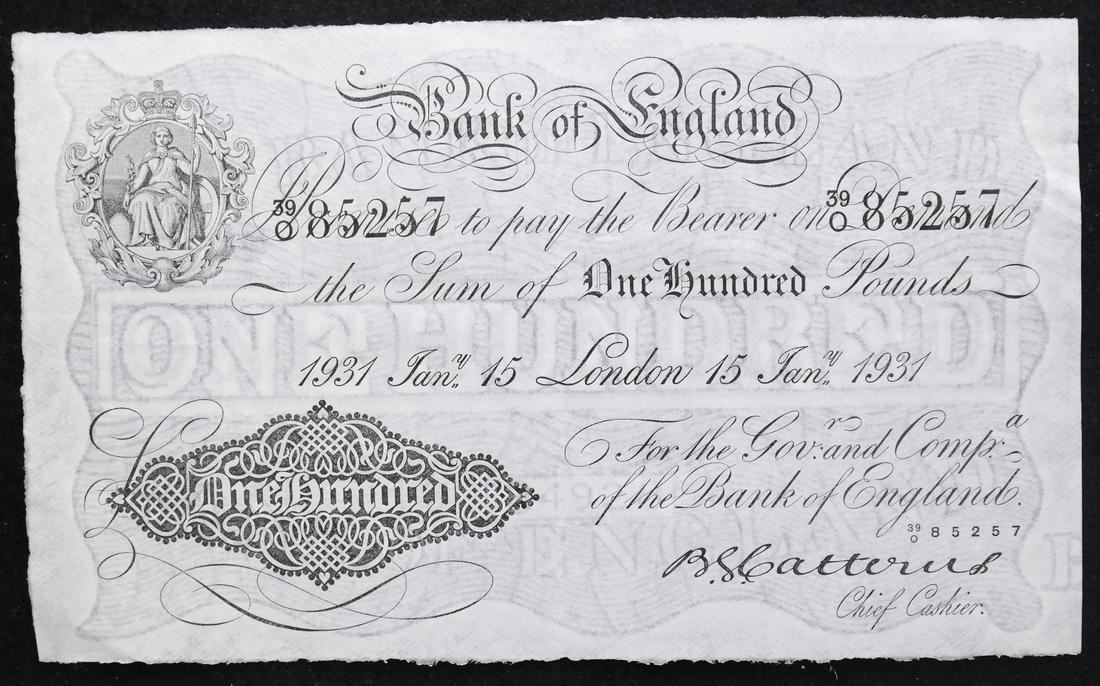 Bank of England
39/0 85257 39/0 85257
I Promise to pay the Bearer on Demand
the Sum of One Hundred Pounds
1931 Jan.y 15 London 15 Jan.y 1931
For the Gov.r and Comp.a
of the Bank of England.
£ One Hundred
39/0 85257
B.G. Catterns
Chief Cashier.
ONE HUNDRED